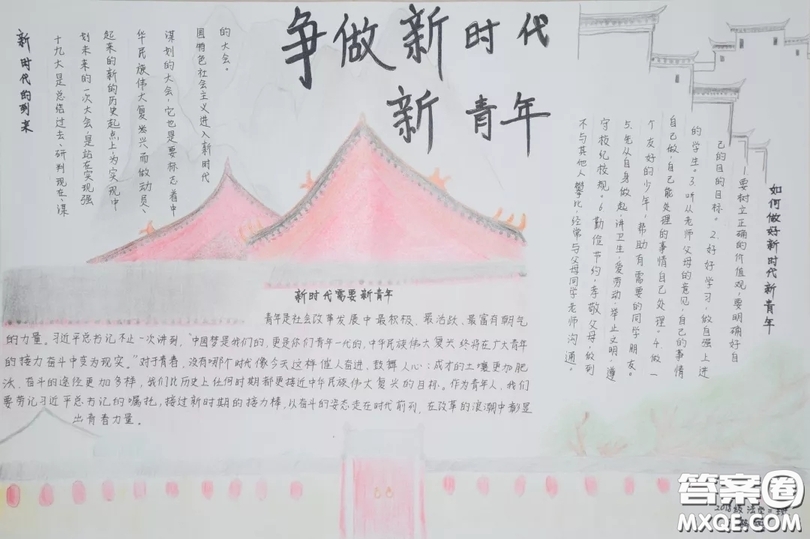 争做新时代
新青年
如何做好新时代新青年
一要树立正确的价值观,要明确好自
己的目的目标。2.好好学习,做自强上进
的学生。3.听从老师父母的意见,自己的事情
自己做,自己能处理的事情自己处理。4.做一
个友好的少年,帮助有需要的同学朋友。
5.先从自身做起,讲卫生,爱劳动,举止文明,遵
守校纪校规。6.勤俭节约,孝敬父母,做到
不与其他人攀比,经常与父母同学老师沟通。
新时代的到来
十九大是总结过去、研判现在、谋
划未来的一次大会,是站在实现强
起来的新的历史起点上为实现中
华民族伟大复兴而做动员、
谋划的大会,它也是要标志着中
国特色社会主义进入新时代
的大会。
新时代需要新青年
青年是社会改革发展中最积极、最活跃、最富有朝气
的力量。习近平总书记不止一次讲到,“中国梦是我们的,更是你们青年一代的,中华民族伟大复兴终将在广大青年
的接力奋斗中变为现实。”对于青春,没有哪个时代像今天这样催人奋进、鼓舞人心:成才的土壤更加肥
沃,奋斗的途径更加多样,我们比历史上任何时期都更接近中华民族伟大复兴的目标。作为青年人,我们
要劳记习近平总书记的嘱托,接过新时期的接力棒,以奋斗的姿态走在时代前列,在改革的浪潮中彰显
出青春力量。
2018级法学
答案圈
MXQE.COM